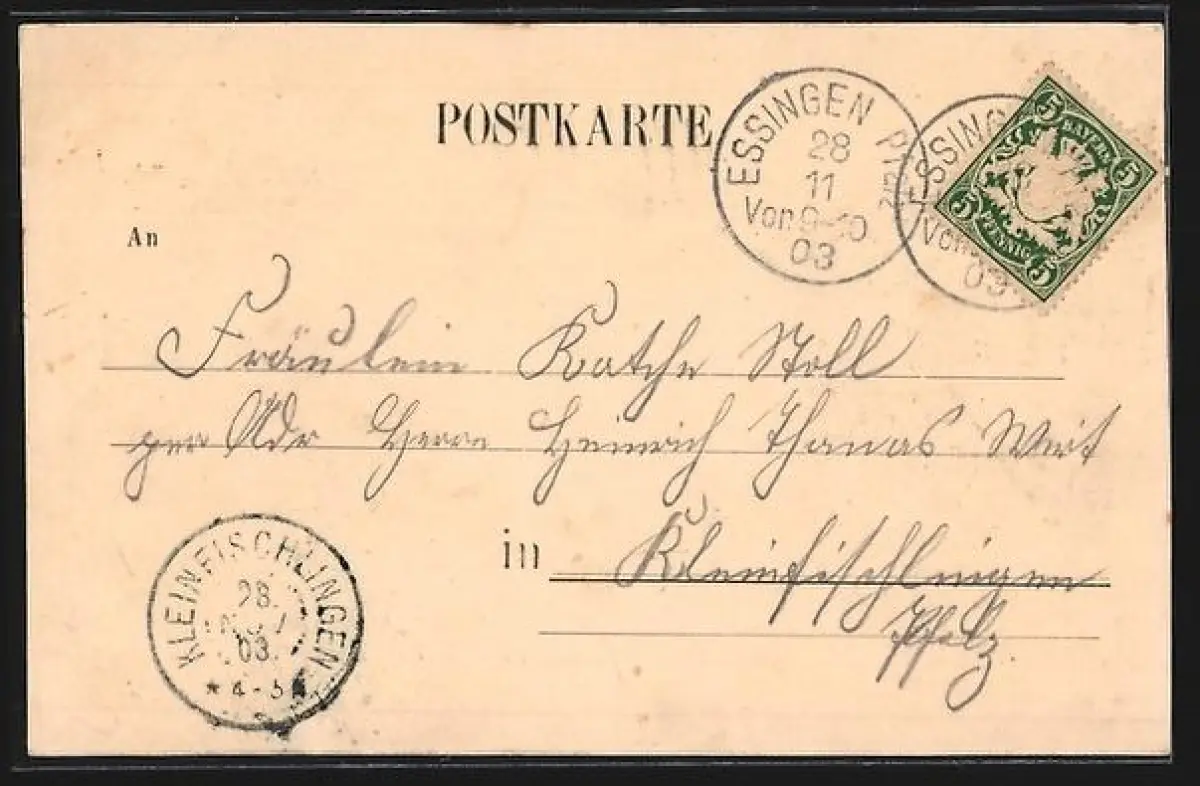 POSTKARTE
ESSINGEN PFALZ
28
11
Vor. 9-10
03
ESSING
Vor
03
5 BAYERN 5
5 PFENNIG 5
An
Fräulein Katche Stoll
per Adr Herrn Heinrich Thomas Wirt
in Kleinfischlingen
Pfalz
KLEINFISCHLINGEN
28.
NOV
03.
* 4-5